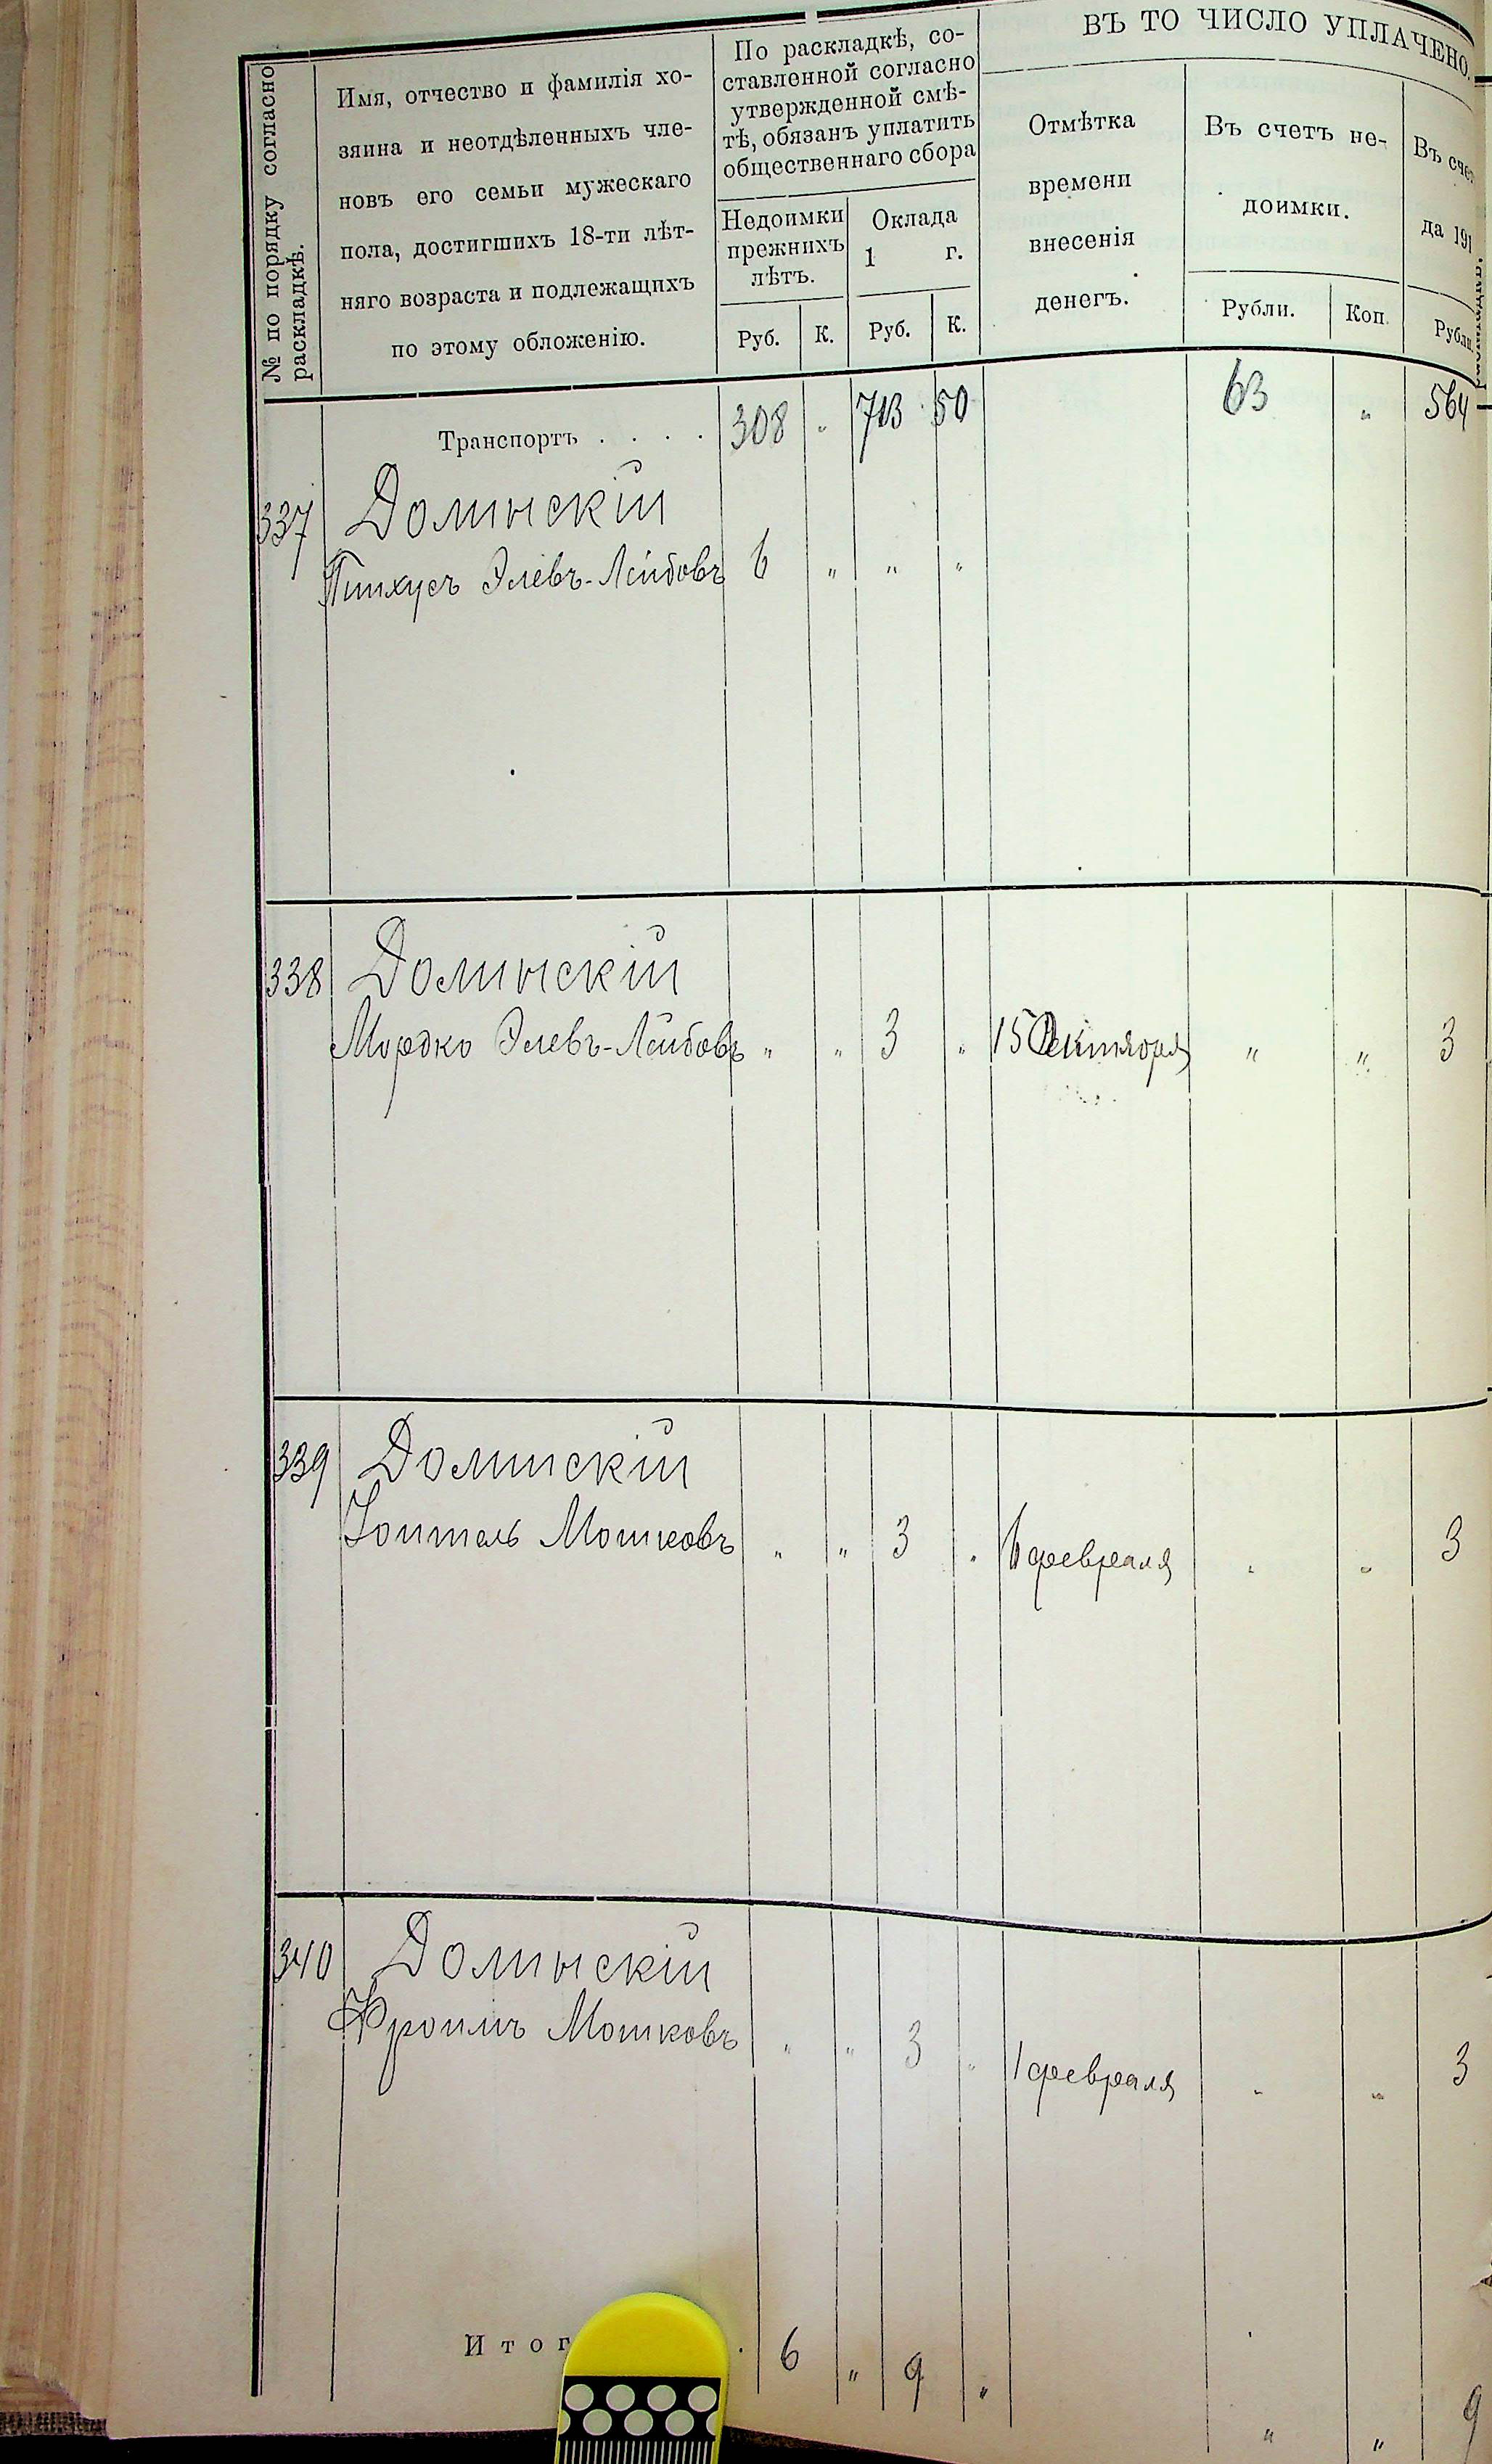 № по порядку согласно
раскладкѣ.
Имя, отчество и фамилія хо-
зяина и неотдѣленныхъ чле-
новъ его семьи мужескаго
пола, достигшихъ 18-ти лѣт-
няго возраста и подлежащихъ
по этому обложенію.
По раскладкѣ, со-
ставленной согласно
утвержденной смѣ-
тѣ, обязанъ уплатить
общественнаго сбора
Недоимки
прежнихъ
лѣтъ.
Оклада
1 г.
Руб. К. Руб. К.
ВЪ ТО ЧИСЛО УПЛАЧЕНО.
Отмѣтка
времени
внесенія
денегъ.
Въ счетъ не-
доимки.
Рубли. Коп.
Въ сче
да 191
Рубли.
Транспортъ . . . . 308 „ 713 50 63 „ 564
337 Долинскій
Пинхусъ Элевъ-Лейбовъ 6 „ „ „
338 Долинскій
Мордко Элевъ-Лейбовъ „ „ 3 „ 15 Октября „ „ 3
339 Долинскій
Мошковъ „ „ 3 „ 6 февраля „ „ 3
340 Долинскій
Фроимъ Мошковъ „ „ 3 „ 1 февраля „ „ 3
Итог . 6 „ 9 „ „ „ 9